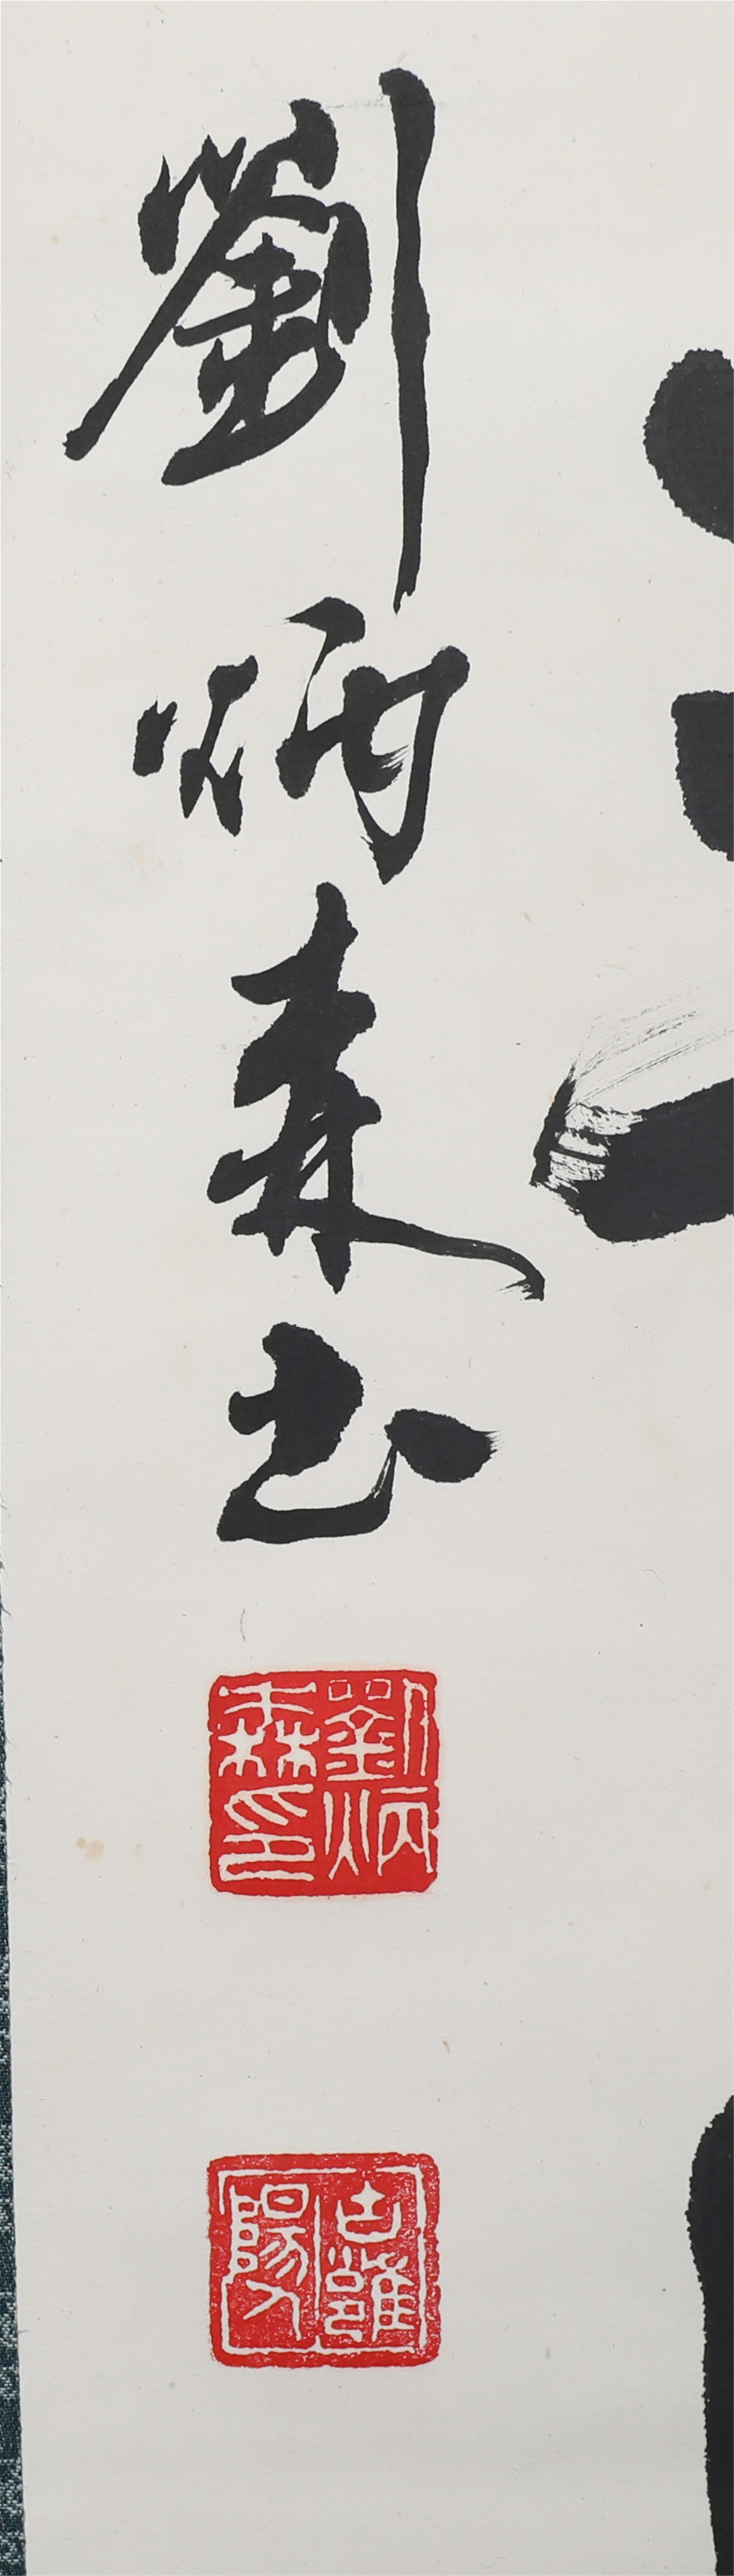 劉炳森书
劉炳
森印
古雝
陽人